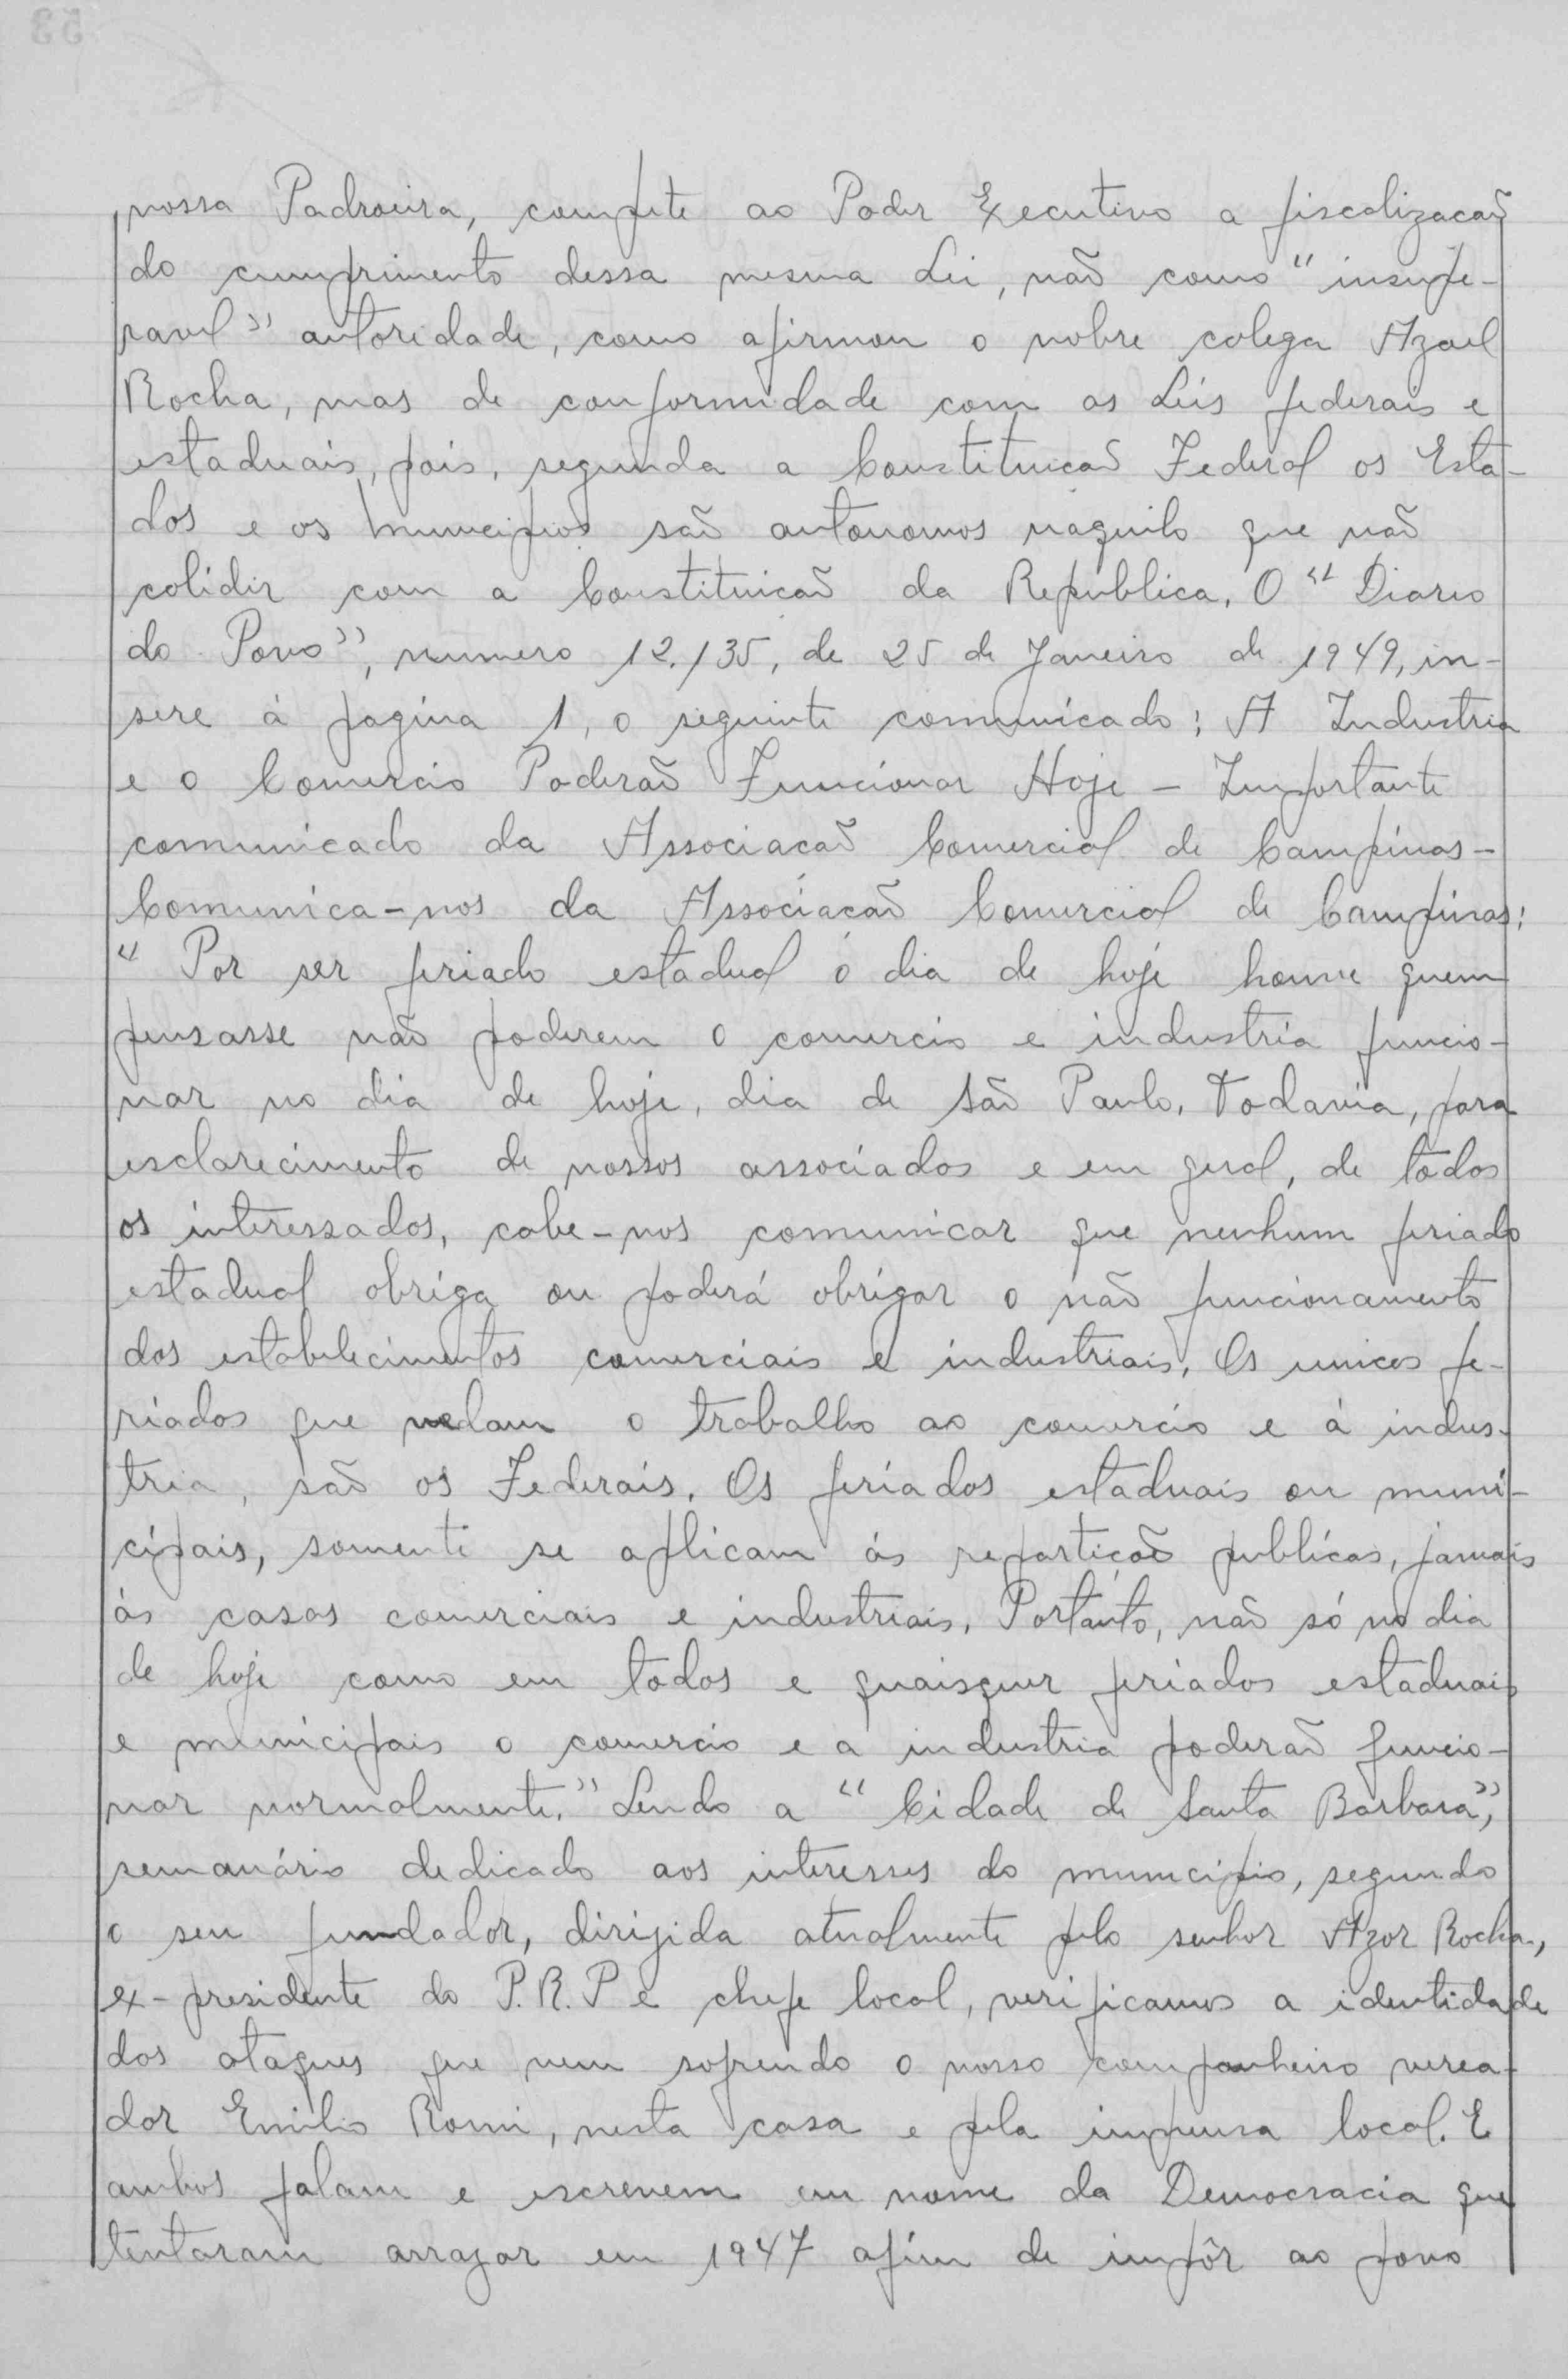 nossa Padroeira, compete ao Poder Executivo a fiscalizacaõ
do cumprimento dessa mesma Lei, naõ como "insupe-
ravel" autoridade, como afirmou o nobre colega Azael
Rocha, mas de conformidade com as Leis federais e
estaduais, pois, segunda a Constituicaõ Federal os Esta-
dos e os Municipios saõ autonomos naquilo que naõ
colidir com a Constituicaõ da República. O "Diario
do Povo", numero 12.135, de 25 de Janeiro de 1949, in-
sere á pagina 1, o seguinte comunicado: A Industria
e o Comercio Poderaõ Funcionar Hoje - Importante
comunicado da Associacaõ Comercial de Campinas -
Comunica-nos da Associacaõ Comercial de Campinas:
"Por ser feriado estadual o dia de hoje houve quem
pensasse naõ poderem o comercio e industria funcio-
nar no dia de hoje, dia de São Paulo. Todavia, para
esclarecimento de nossos associados e em geral, de todos
os interessados, cabe-nos comunicar que nenhum feriado
estadual obriga ou poderá obrigar o não funcionamento
dos estabelecimentos comerciais e industriais. Os unicos fe-
riados que vedam o trabalho ao comercio e á indus-
tria, saõ os Federais. Os feriados estaduais ou muni-
cipais, somente se aplicam ás reparticoẽs publicas, jamais
ás casas comerciais e industriais. Portanto, naõ só no dia
de hoje como em todos e quaisquer feriados estaduais
e municipais o comercio e a industria poderaõ funcio-
nar normalmente." Lendo a "Cidade de Santa Barbara",
semanário dedicado aos interesses do municipio, segundo
o seu fundador, dirigida atualmente pelo senhor Azor Rocha,
ex-presidente do P.R.P e chefe local, verificamos a identidade
dos ataques que vem sofrendo o nosso companheiro verea-
dor Emilio Romi, nesta casa e pela imprensa local. E
ambos falam e escrevem em nome da Democracia que
tentaram arrazar em 1947 afim de impôr ao povo